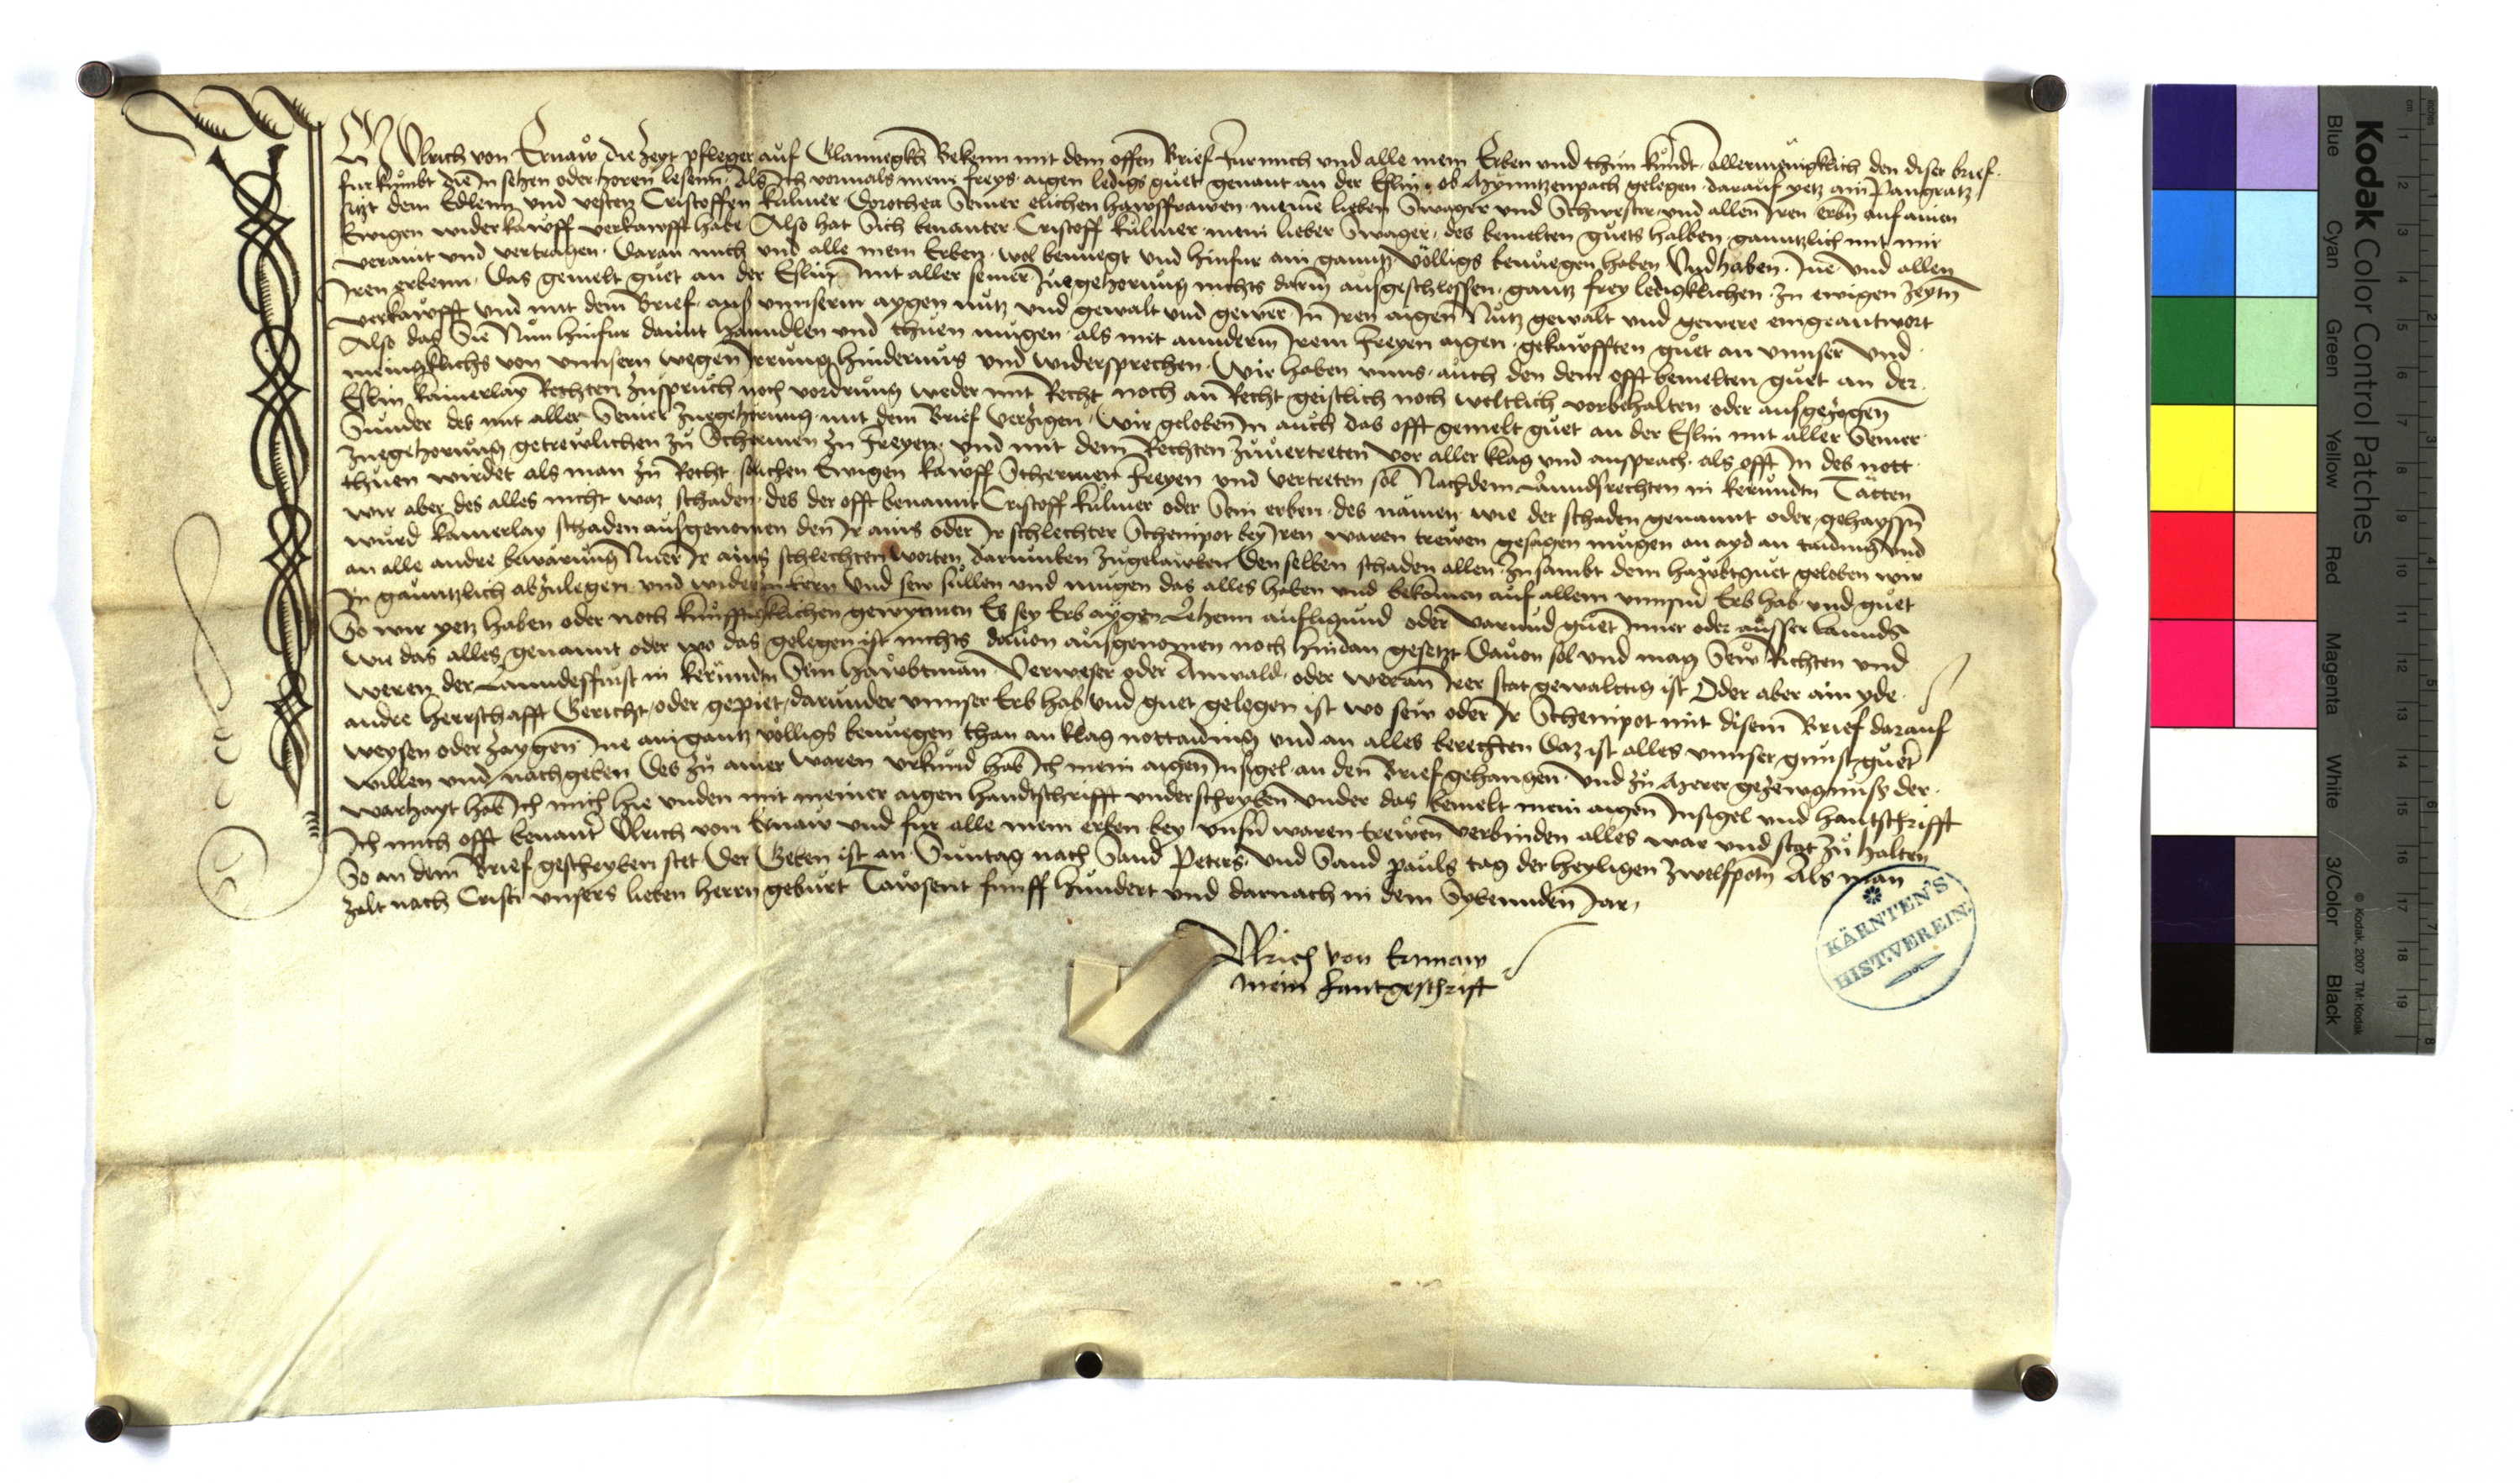 Ich Ulrich von Ernaw die Zeyt pfleger auf Glannegkh Bekenn mit dem offen Brief Fur mich und alle mein Erben und thun kundt Allermenigklich den diser brief
furkumbt die In sehen oder horen lesenn Als Ich vormals mein freys aigen ledigs guet genant an der Eslin ob gelegen darauf yetz ain Pangratz
sizt dem Edlenn und vesten Cristoffen Kulmer Dorothea Seiner elichen hawsfrawen meine lieben Swager und Schwester und allen Iren erbn auf ainen
Ewigen widerkawff verkawfft habe Also hat Sich benanter Cristoff Kulmer mein lieber Swager des bemelten guets halben ganntzlich mit mir
veraint und vertragen Daran mich und alle mein Erben wol benuegt und hinfur ain ganntz völligs benuegen haben Und haben Ine und allen
Iren erbenn Das gemelt guet an der Eslin mit aller seiner Zuegehorung nichts darin ausgeschlossen gantz frey ledigklichen zu ewigen Zeytn
verkawfft und mit dem Brief aus unnserm aygen nutz und gewalt und gewer In Iren aigen Nutz gewalt und gewere eingeantwort
Also das Sie Nun hinfur damit hanndlen und thuen mugen als mit annderm Irem Freyen aigen gekawfften guet an unnser und
meingklichs von unnsern wegen Irrung hindernus und widersprechen Wir haben unns auch den dem offt bemelten guet an der
Eslin kainerlay Rechten zuspruch noch vordrung weder mit Recht noch an Recht geistlich noch weltlich vorbehalten oder ausgezogen
Sunder des mit aller Seiner zuegehörung mit dem Brief verzigen Wir geloben In auch das offt gemelt guet an der Eslin mit aller Seiner
zuegehorung getrewlichen zu Schermen zu Freyen und mit dem Rechten zuvertreten vor aller klag und ansprach als offt In des nott
thuen wirdet als man zu Recht solichen Ewigen kawff Schermen freyen und vertreten sol Nachdem Lanndsrechten in kerndtn Tätten
wir aber des alles nicht waz schaden des der offt benannt Cristoff Kulmer oder Sein erben des namen wie der schaden genannt oder gehayssn
wurd kainerlay schaden ausgenomen den Ir ains oder Ir schlechter Scheinpot bey Iren waren trewen gesagen mugen an ayd an taiding und
an alle andre bewarung Nuer Ir ains schlechten worten darumben zugelawben Den selben schaden allen zusambt dem hawbtguet geloben wir
In ganntzlich abzulegen und widerzukern Und sew sullen und mugen das alles haben und bekomen auf allem unnserm Erb hab und guet
So wir yetz haben oder noch kunfftigklichen gewynnen Es sey Erb aygen Lehenn aufligund oder varund guet Inner oder ausser Lannds
wie das alles genannt oder wo das gelegen ist nichts davon ausgenomen noch hindan gesetzt Davon sol und mag Sew Richten und
weren der Lanndesfurst in kerndtn Sein hawbtman Verweser oder Anwald oder weran Irer stat gewalttig ist Oder aber ain yde
andre herrschafft Gericht oder gepiet darunder unnser Erb hab und guet gelegen ist wo sew oder Ir Scheinpot mit disem Brief darauf
weysen oder zaygen Ine ain gantz völligs benuegen than an klag nottaiding und an alles berechten Daz ist alles unnser gunst guet
willen und nachgeben Des zu ainer waren urkund hab Ich mein aigen Insigel an den Brief gehangen und zu merer gezewgnuss der
warhayt hab Ich mich hie unden mit meiner aigen handtschrifft underschryben Under das bemelt mein aigen Insigel und hantschrifft
Ich mich offt benant Ulrich von Ernaw und fur alle mein erben bey unsn waren trewen verbinden alles war und stat zu halten
So an dem Brief geschryben stet Der Geben ist an Suntag nach Sand Peters und Sand pauls tag der heyligen zwelfpotn Als man
zalt nach Cristi unsers lieben herrn geburt Tawsent funff hundert und darnach in dem Sybennden Jar
Ulrich von Ernnaw
mein hantgeschrift
KÄRNTEN'S
HIST.VEREIN.
Kodak Color Control Patches
Blue Cyan Green Yellow Red Magenta White 3/Color Black
© Kodak, 2007 TM: Kodak
cm 1 2 3 4 5 6 7 8 9 10 11 12 13 14 15 16 17 18 19
inches 1 2 3 4 5 6 7 8